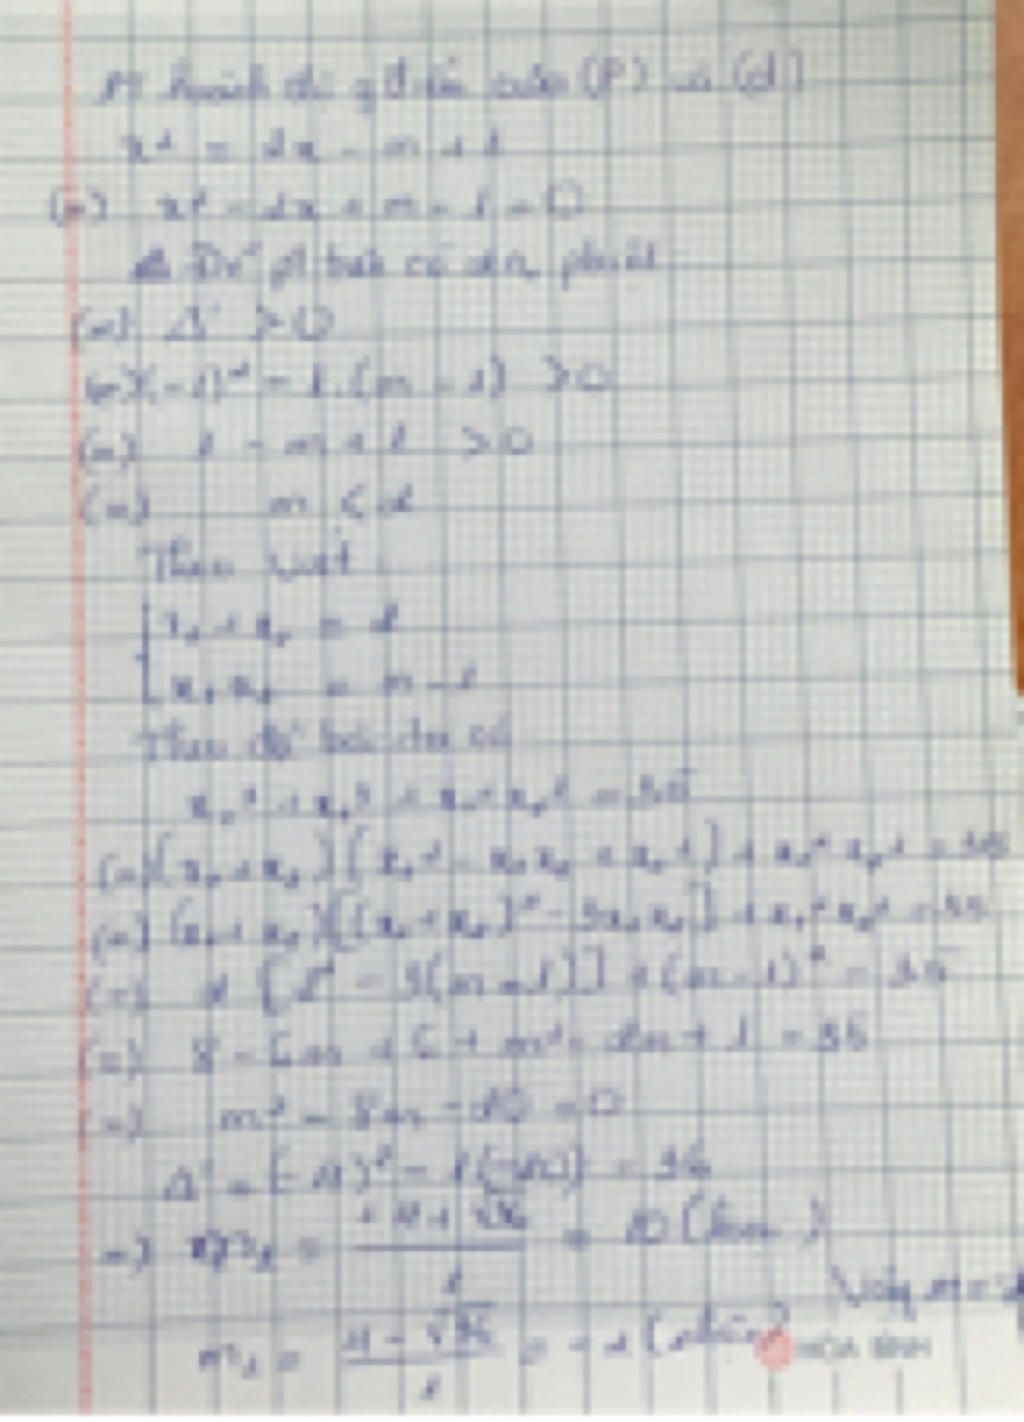 Pt hoành độ gđ của (P) và (d)
x² = 2x - m + 1
(=) x² - 2x + m - 1 = 0
Để pt có 2 n phbiệt
(=) Δ' > 0
(=) (-1)² - 1.(m - 1) > 0
(=) 1 - m + 1 > 0
(=) m < 2
Theo Viet
x₁ + x₂ = 2
x₁ x₂ = m - 1
Theo đề bài ta có
x₁³ + x₂³ + x₁² x₂² = 35
(=) (x₁ + x₂)(x₁² - x₁x₂ + x₂²) + x₁² x₂² = 35
(=) (x₁ + x₂)[(x₁ + x₂)² - 3x₁x₂] + x₁² x₂² = 35
(=) 2 [2² - 3(m - 1)] + (m - 1)² = 35
(=) 8 - 6m + 6 + m² - 2m + 1 = 35
(=) m² - 8m - 20 = 0
Δ' = (-4)² - 1(-20) = 36
=) m₁ = (4 + √36)/1 = 10 (loại)
Vậy m = -2
m₂ = (4 - √36)/1 = -2 (nhận)
HÒA BÌNH